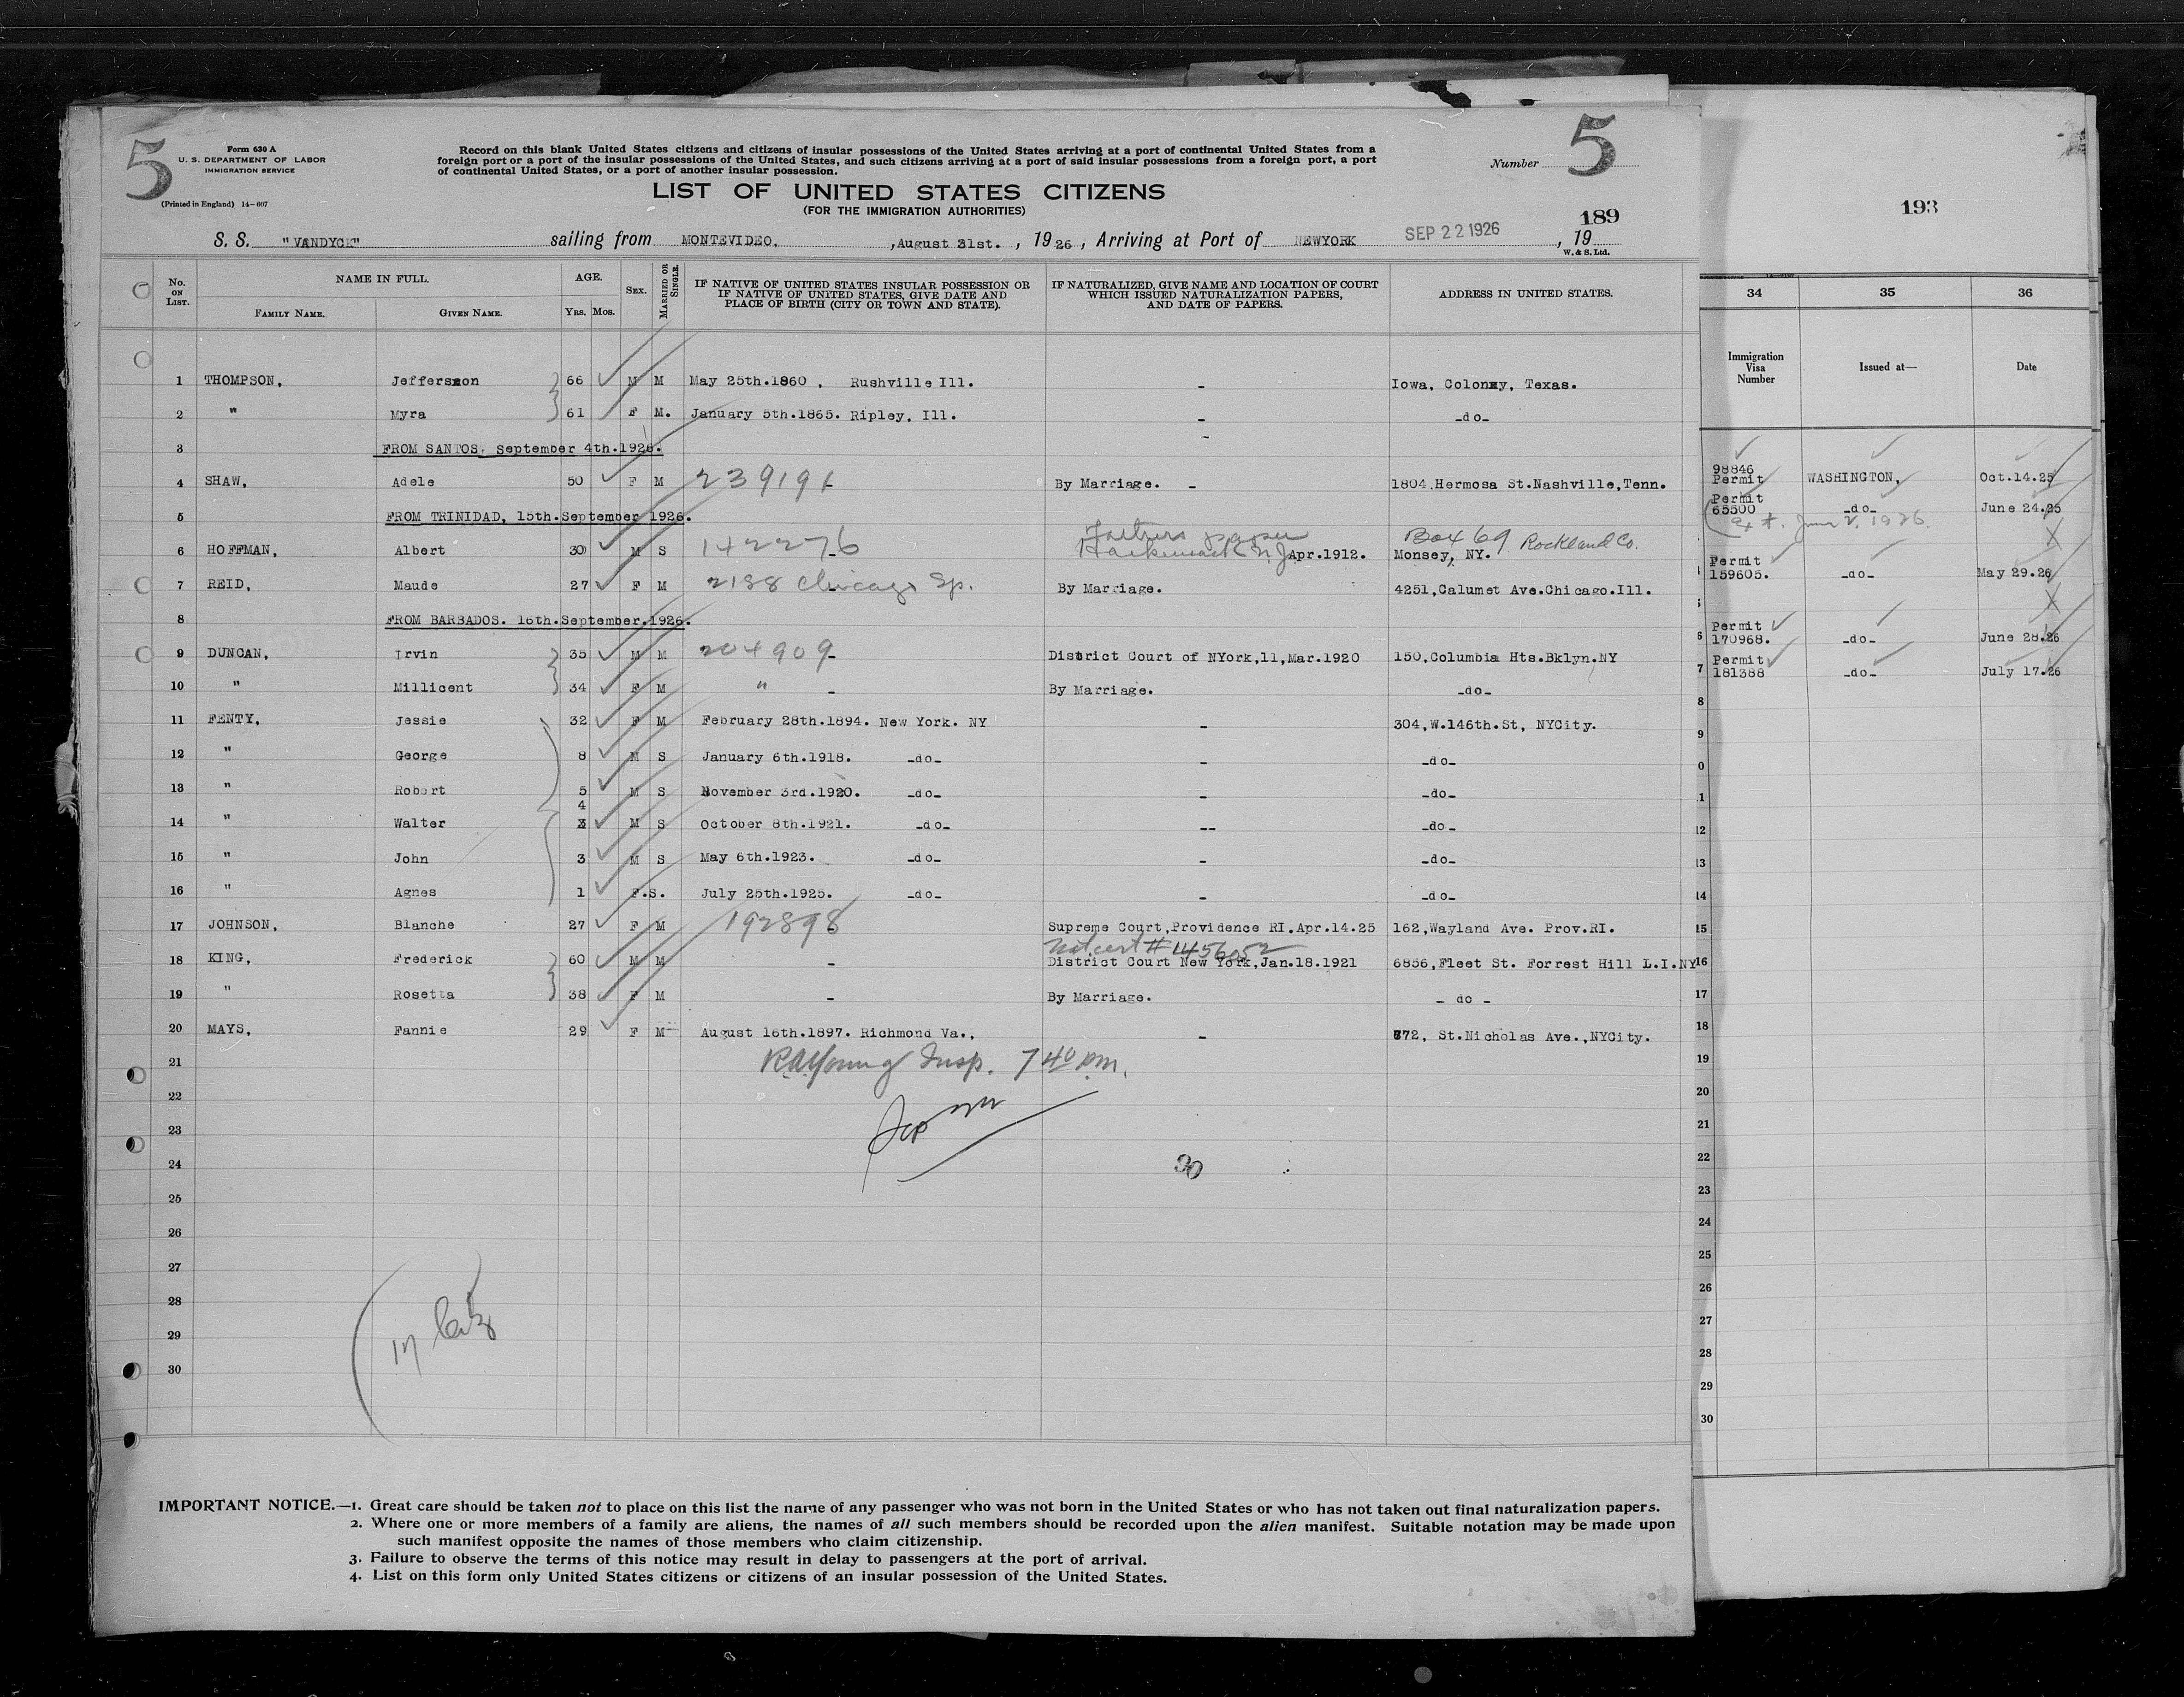 5
Form 630 A
U. S. DEPARTMENT OF LABOR
IMMIGRATION SERVICE
(Printed in England) 14-607
Record on this blank United States citizens and citizens of insular possessions of the United States arriving at a port of continental United States from a
foreign port or a port of the insular possessions of the United States, and such citizens arriving at a port of said insular possessions from a foreign port, a port
of continental United States, or a port of another insular possession.
Number 5
LIST OF UNITED STATES CITIZENS
(FOR THE IMMIGRATION AUTHORITIES)
189
S. S. "VANDYCK" sailing from MONTEVIDEO. , August 31st. , 1926, Arriving at Port of NEWYORK SEP 22 1926 , 19
W. & S. Ltd.
No. ON LIST. NAME IN FULL. AGE. SEX. MARRIED OR SINGLE. IF NATIVE OF UNITED STATES INSULAR POSSESSION OR IF NATIVE OF UNITED STATES, GIVE DATE AND PLACE OF BIRTH (CITY OR TOWN AND STATE). IF NATURALIZED, GIVE NAME AND LOCATION OF COURT WHICH ISSUED NATURALIZATION PAPERS, AND DATE OF PAPERS. ADDRESS IN UNITED STATES.
FAMILY NAME. GIVEN NAME. YRS. MOS.
1 THOMPSON, Jefferson 66 M M May 25th.1860 , Rushville Ill. - Iowa, Colony, Texas.
2 " Myra 61 F M. January 5th.1865. Ripley, Ill. - -do-
3 FROM SANTOS, September 4th.1926. -
4 SHAW, Adele 50 F M 239191 - By Marriage. - 1804,Hermosa St.Nashville,Tenn.
5 FROM TRINIDAD, 15th.September 1926.
Fathers paper Box 69 Rockland Co.
6 HOFFMAN, Albert 30 M S 142276 - Hackensack N.J Apr.1912. Monsey, NY.
7 REID, Maude 27 F M 2188 Chicago Sp. By Marriage. 4251,Calumet Ave.Chicago.Ill.
8 FROM BARBADOS. 16th.September.1926.
9 DUNCAN, Irvin 35 M M 204909 - District Court of NYork,11,Mar.1920 150,Columbia Hts.Bklyn.NY
10 " Millicent 34 F M " - By Marriage. -do-
11 FENTY, Jessie 32 F M February 28th.1894. New York. NY - 304,W.146th.St, NYCity.
12 " George 8 M S January 6th.1918. -do- - -do-
13 " Robert 5 M S November 3rd.1920. -do- - -do-
4
14 " Walter 3 M S October 8th.1921. -do- -- -do-
15 " John 3 M S May 6th.1923. -do- - -do-
16 " Agnes 1 F.S. July 25th.1925. -do- - -do-
17 JOHNSON, Blanche 27 F M 192898 Supreme Court,Providence RI.Apr.14.25 162,Wayland Ave. Prov.RI.
Nat cert # 1456052
18 KING, Frederick 60 M M - District Court New York,Jan.18.1921 6856,Fleet St. Forrest Hill L.I.NY
19 " Rosetta 38 F M - By Marriage. - do -
20 MAYS, Fannie 29 F M August 16th.1897. Richmond Va., - 772, St.Nicholas Ave.,NYCity.
21 Young Insp. 7 40 pm.
22
23
24 30
25
26
27
28
29
30
17
IMPORTANT NOTICE.—1. Great care should be taken not to place on this list the name of any passenger who was not born in the United States or who has not taken out final naturalization papers.
2. Where one or more members of a family are aliens, the names of all such members should be recorded upon the alien manifest. Suitable notation may be made upon
such manifest opposite the names of those members who claim citizenship.
3. Failure to observe the terms of this notice may result in delay to passengers at the port of arrival.
4. List on this form only United States citizens or citizens of an insular possession of the United States.
193
34 35 36
Immigration Visa Number Issued at— Date
98846
Permit WASHINGTON, Oct.14.25
Permit
65500 -do- June 24.25
Ext. June 2, 1926.
Permit
159605. -do- May 29.26
Permit
6 170968. -do- June 28.26
Permit
7 181388 -do- July 17.26
8
9
0
1
12
13
14
15
16
17
18
19
20
21
22
23
24
25
26
27
28
29
30